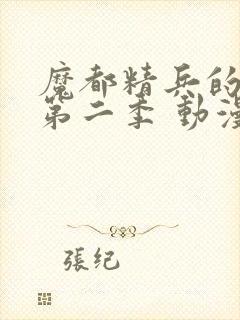 魔都精兵的
第二季 動漫
張纪